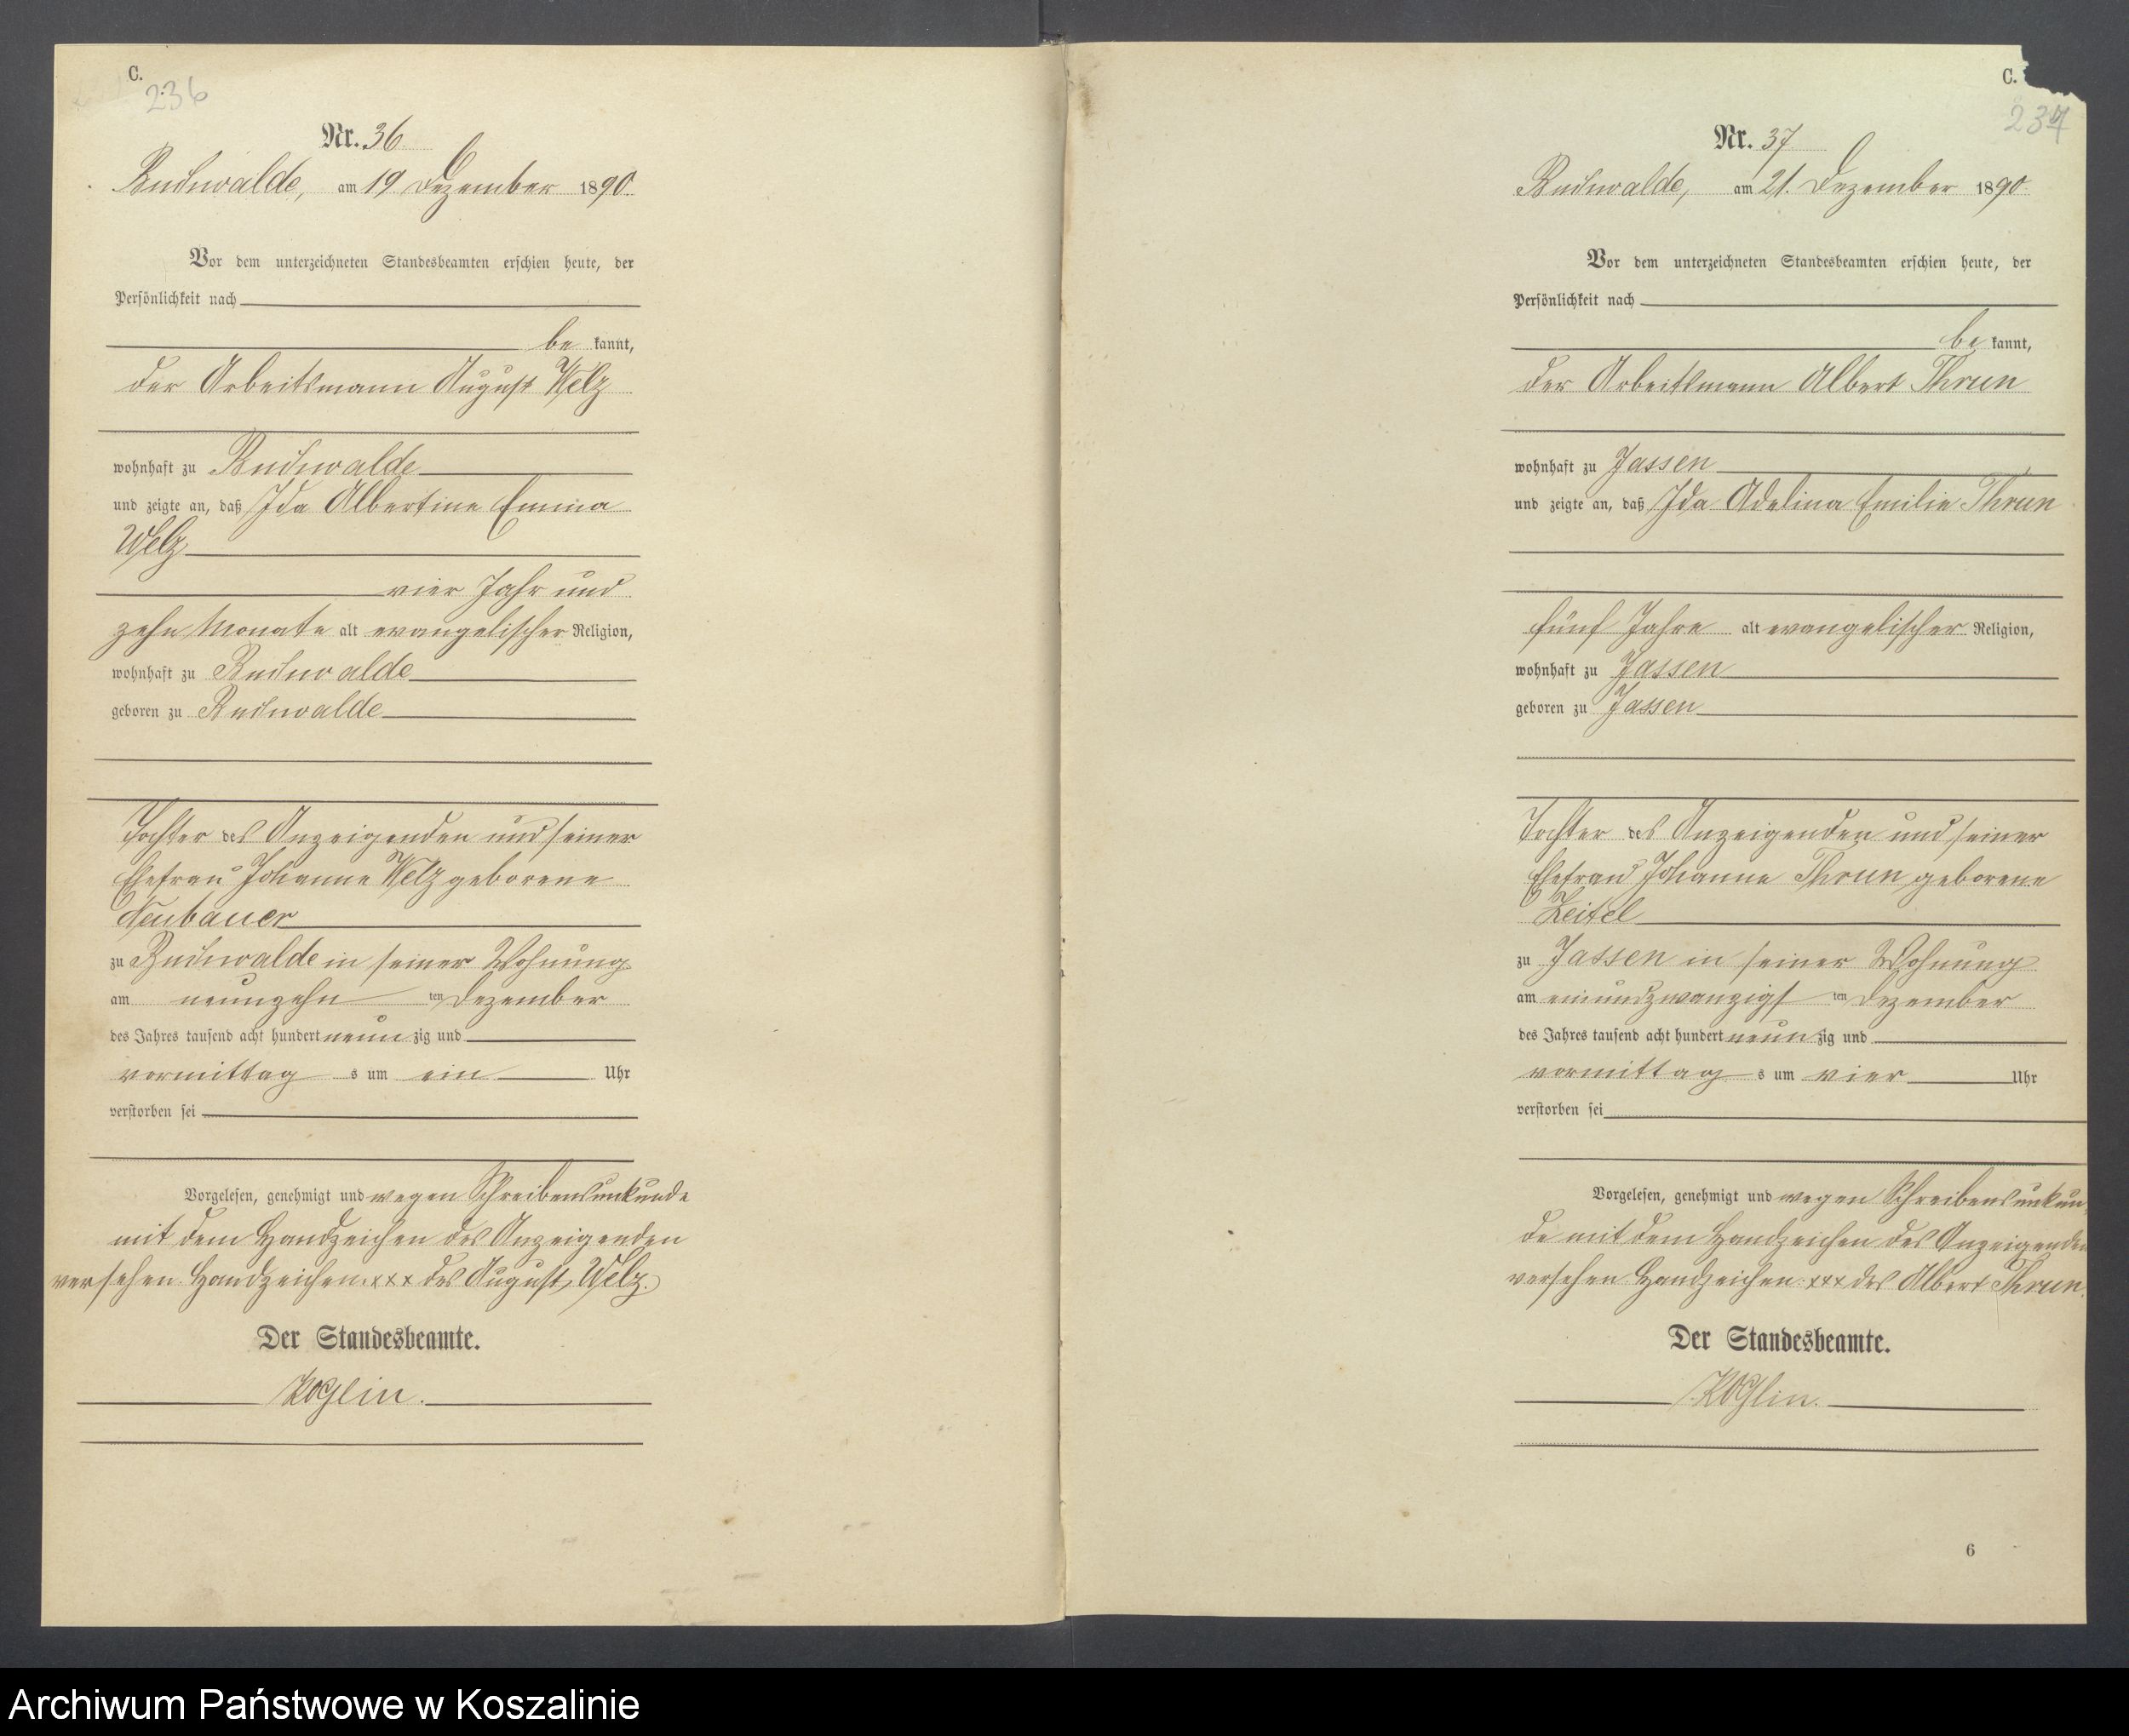 C.
236
Nr. 36
am 19 Dezember 1890.
Vor dem unterzeichneten Standesbeamten erschien heute, der
Persönlichkeit nach
be kannt,
der Arbeitsmann August Welz
wohnhaft zu
und zeigte an, daß Ida Albertine Emma
Welz
vier Jahr und
zehn Monate alt evangelischer Religion,
wohnhaft zu
geboren zu
Tochter des Anzeigenden und seiner
Ehefrau Johanne Welz geborene
Neubauer
zu in seiner Wohnung
am neunzehn ten Dezember
des Jahres tausend acht hundert neun zig und
vormittag s um ein Uhr
verstorben sei
Vorgelesen, genehmigt und wegen Schreibensunkunde
mit dem Handzeichen des Anzeigenden
versehen Handzeichen xxx des August Welz.
Der Standesbeamte.
Koglin.
C.
237
Nr. 37
am 21. Dezember 1890
Vor dem unterzeichneten Standesbeamten erschien heute, der
Persönlichkeit nach
be kannt,
der Arbeitsmann Albert Thrun
wohnhaft zu Jassen
und zeigte an, daß Ida Adelina Emilie Thrun
fünf Jahre alt evangelischer Religion,
wohnhaft zu Jassen
geboren zu Jassen
Tochter des Anzeigenden und seiner
Ehefrau Johanne Thrun geborene
Zeitel
zu Jassen in seiner Wohnung
am einundzwanzigs ten Dezember
des Jahres tausend acht hundert neun zig und
vormittag s um vier Uhr
verstorben sei
Vorgelesen, genehmigt und wegen Schreibensunkun
de mit dem Handzeichen des Anzeigenden
versehen Handzeichen: xxx des Albert Thrun.
Der Standesbeamte.
Koglin.
6
Archiwum Państwowe w Koszalinie